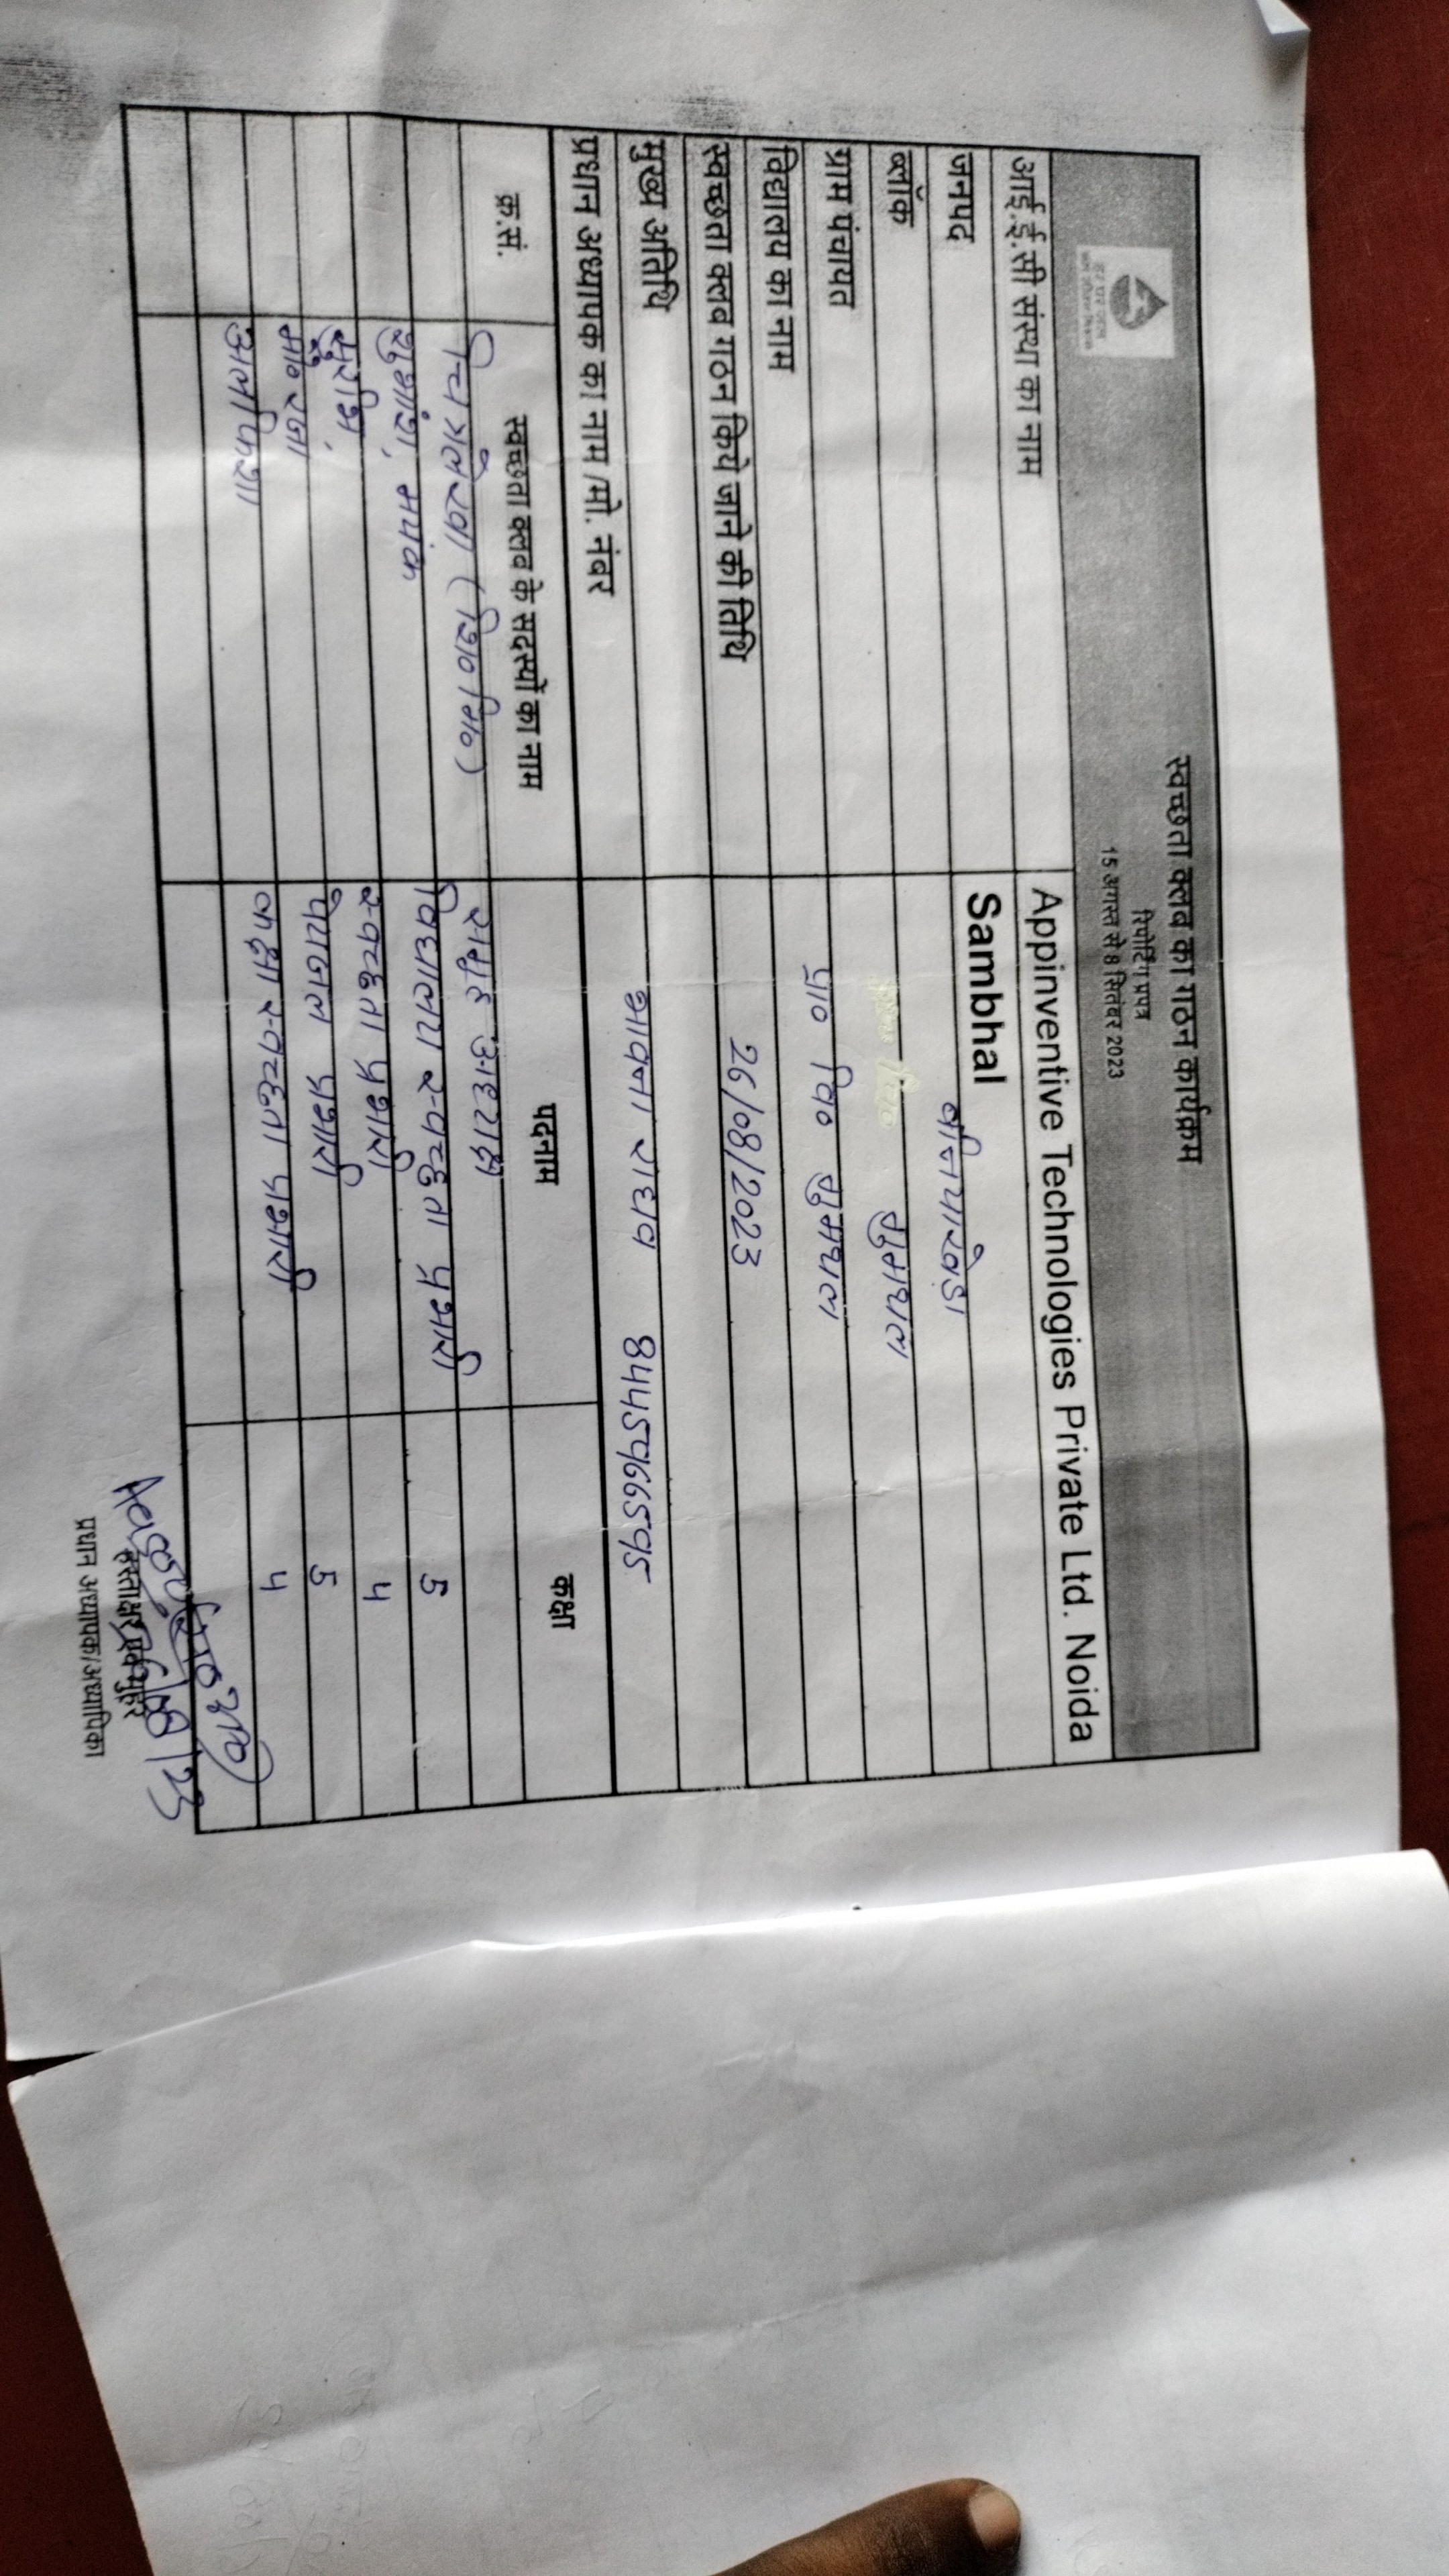 स्वच्छता क्लब का गठन कार्यक्रम
रिपोर्टिंग प्रपत्र
15 अगस्त से 8 सितंबर 2023
हर घर जल
आई.ई.सी संस्था का नाम Appinventive Technologies Private Ltd. Noida
जनपद Sambhal
ब्लॉक बनियाखेडा
ग्राम पंचायत गुमथल
विद्यालय का नाम प्रा० वि० गुमथल
स्वच्छता क्लब गठन किये जाने की तिथि 26/08/2023
मुख्य अतिथि
प्रधान अध्यापक का नाम /मो. नंबर भावना राघव
क्र.सं. स्वच्छता क्लब के सदस्यों का नाम पदनाम कक्षा
चित्रलेखा (शि० मि०) समूह
शुभांश, मयंक विद्यालय स्वच्छता प्रभारी 5
सुरभि, स्वच्छता प्रभारी 4
मो० रजा पेयजल प्रभारी 5
अलफिशा कक्षा स्वच्छता प्रभारी 4
हस्ताक्षर एवं मुहर
प्रधान अध्यापक/अध्यापिका